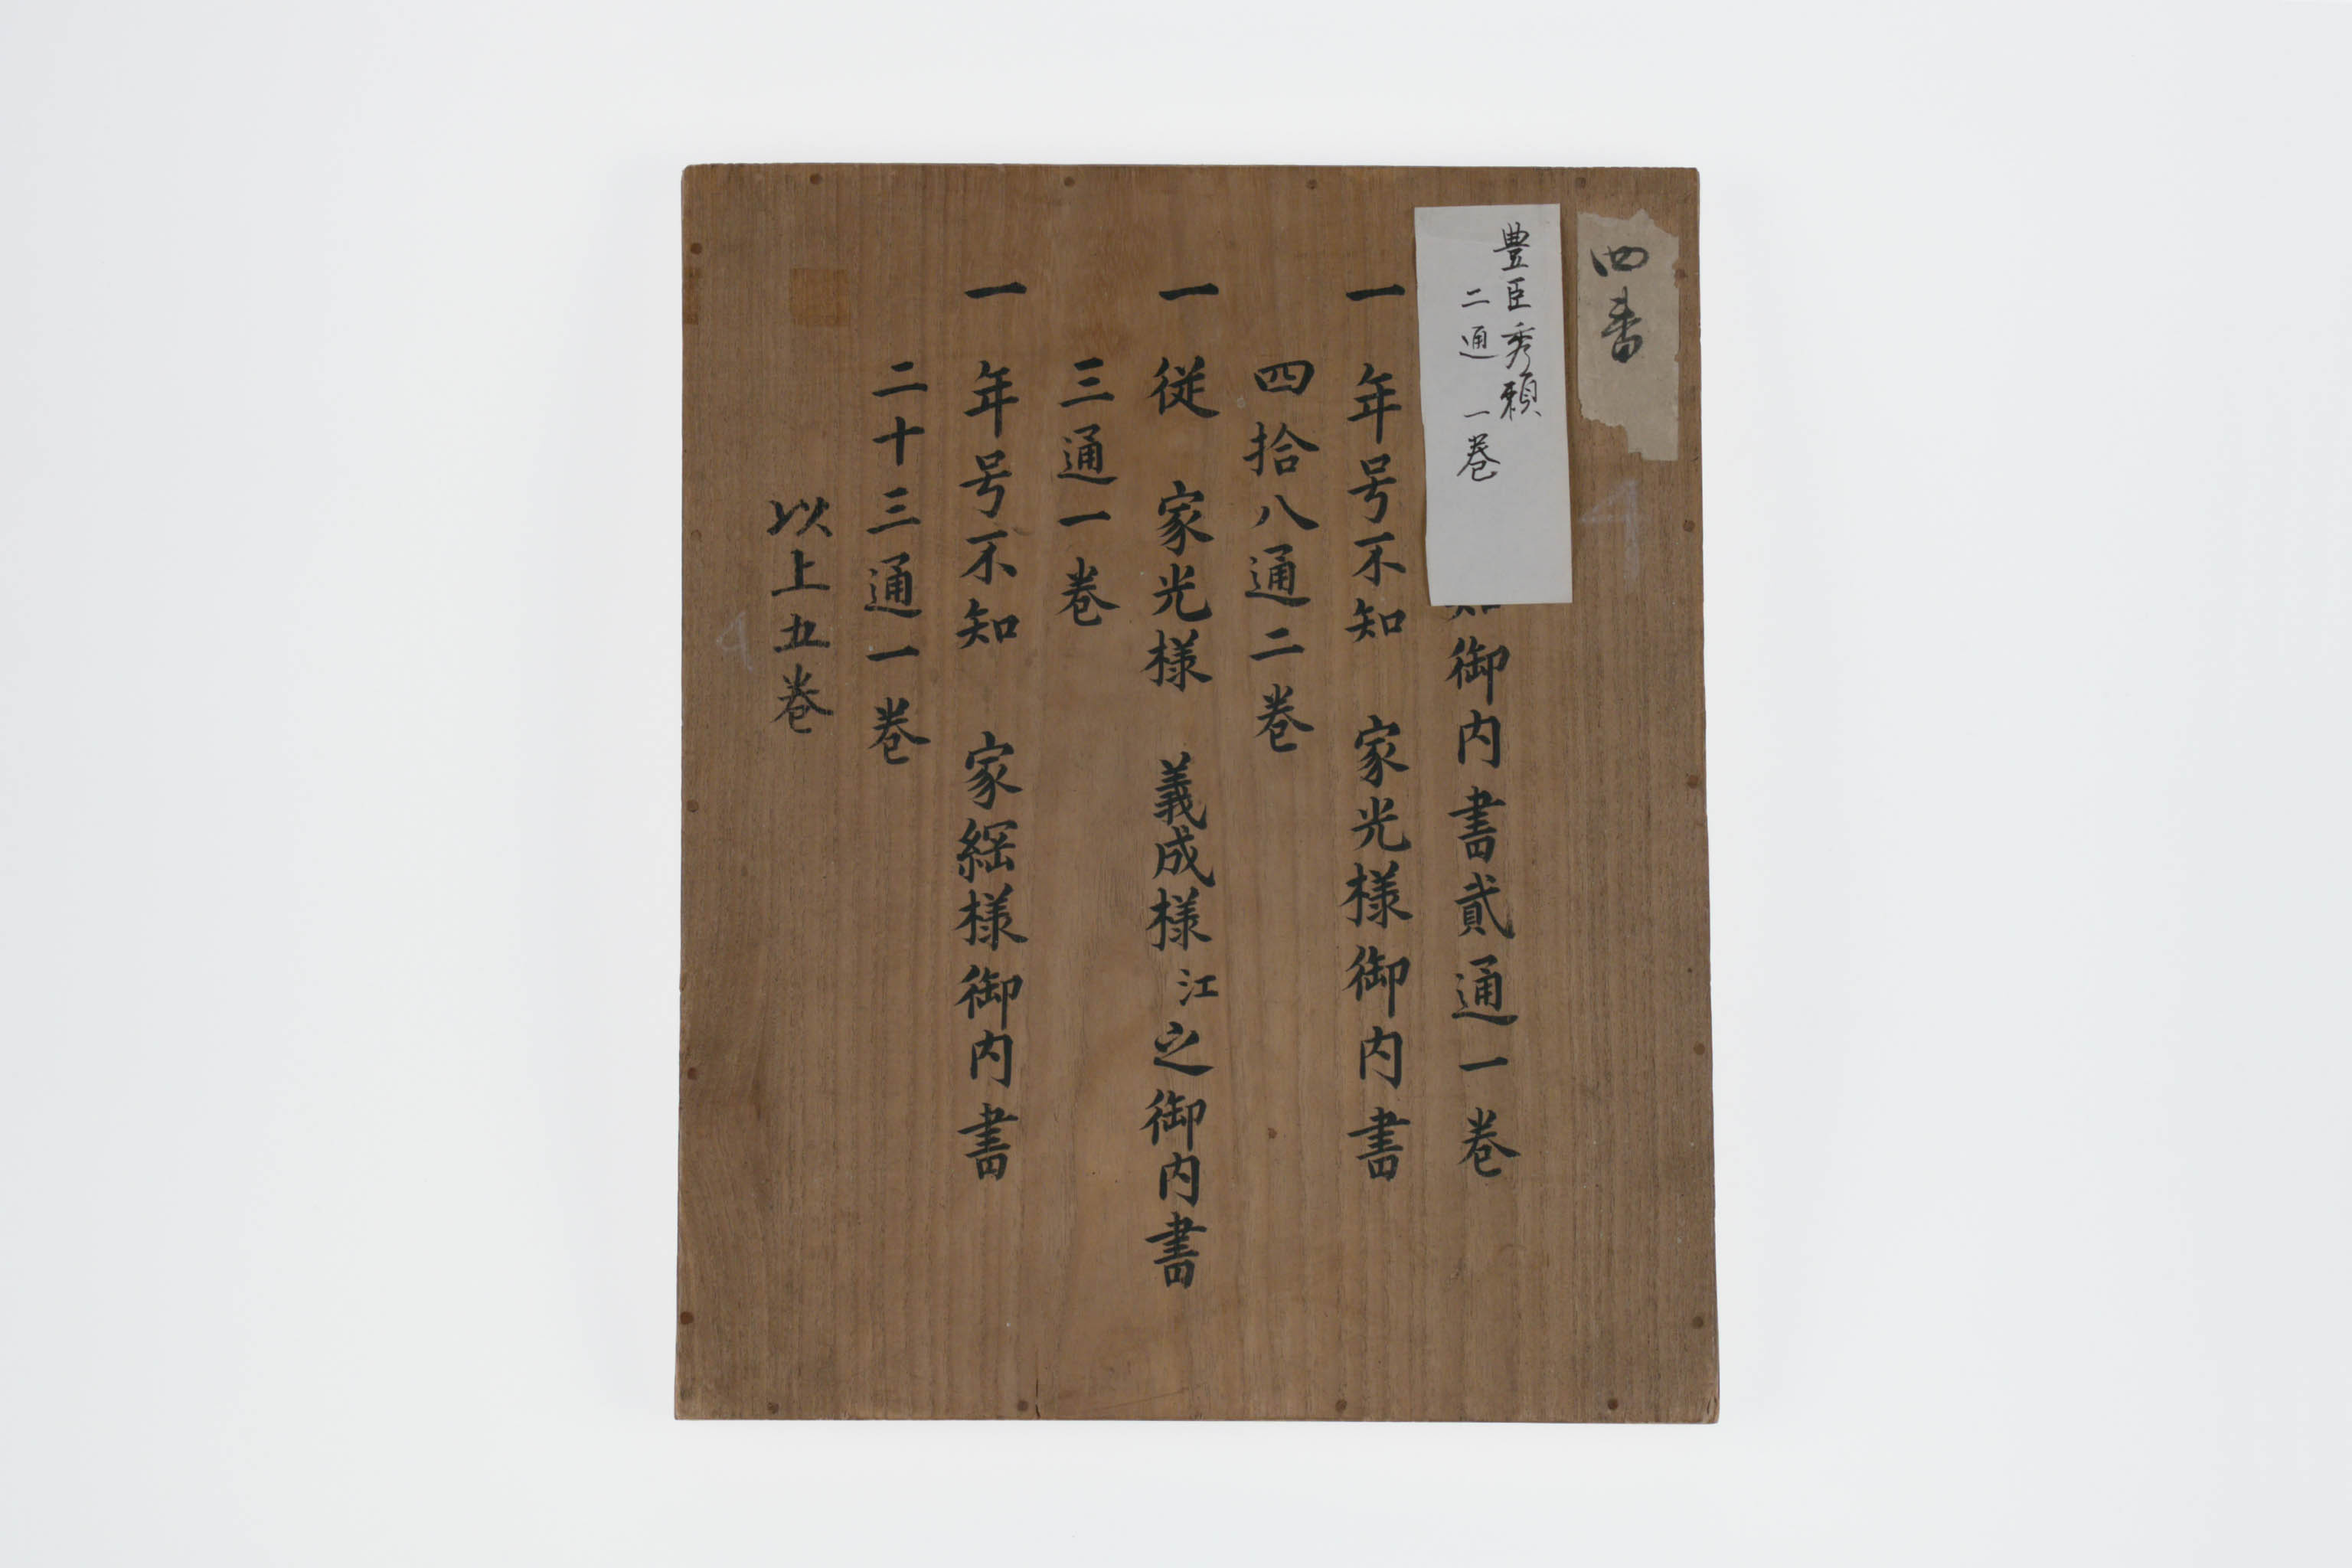 四番
4
豊臣秀頼
二通 一巻
御内書貮通一巻
一 年号不知 家光様御内書
四拾八通二巻
一 従 家光様 義成様江之御内書
三通一巻
一 年号不知 家綱様御内書
二十三通一巻
以上五巻
4